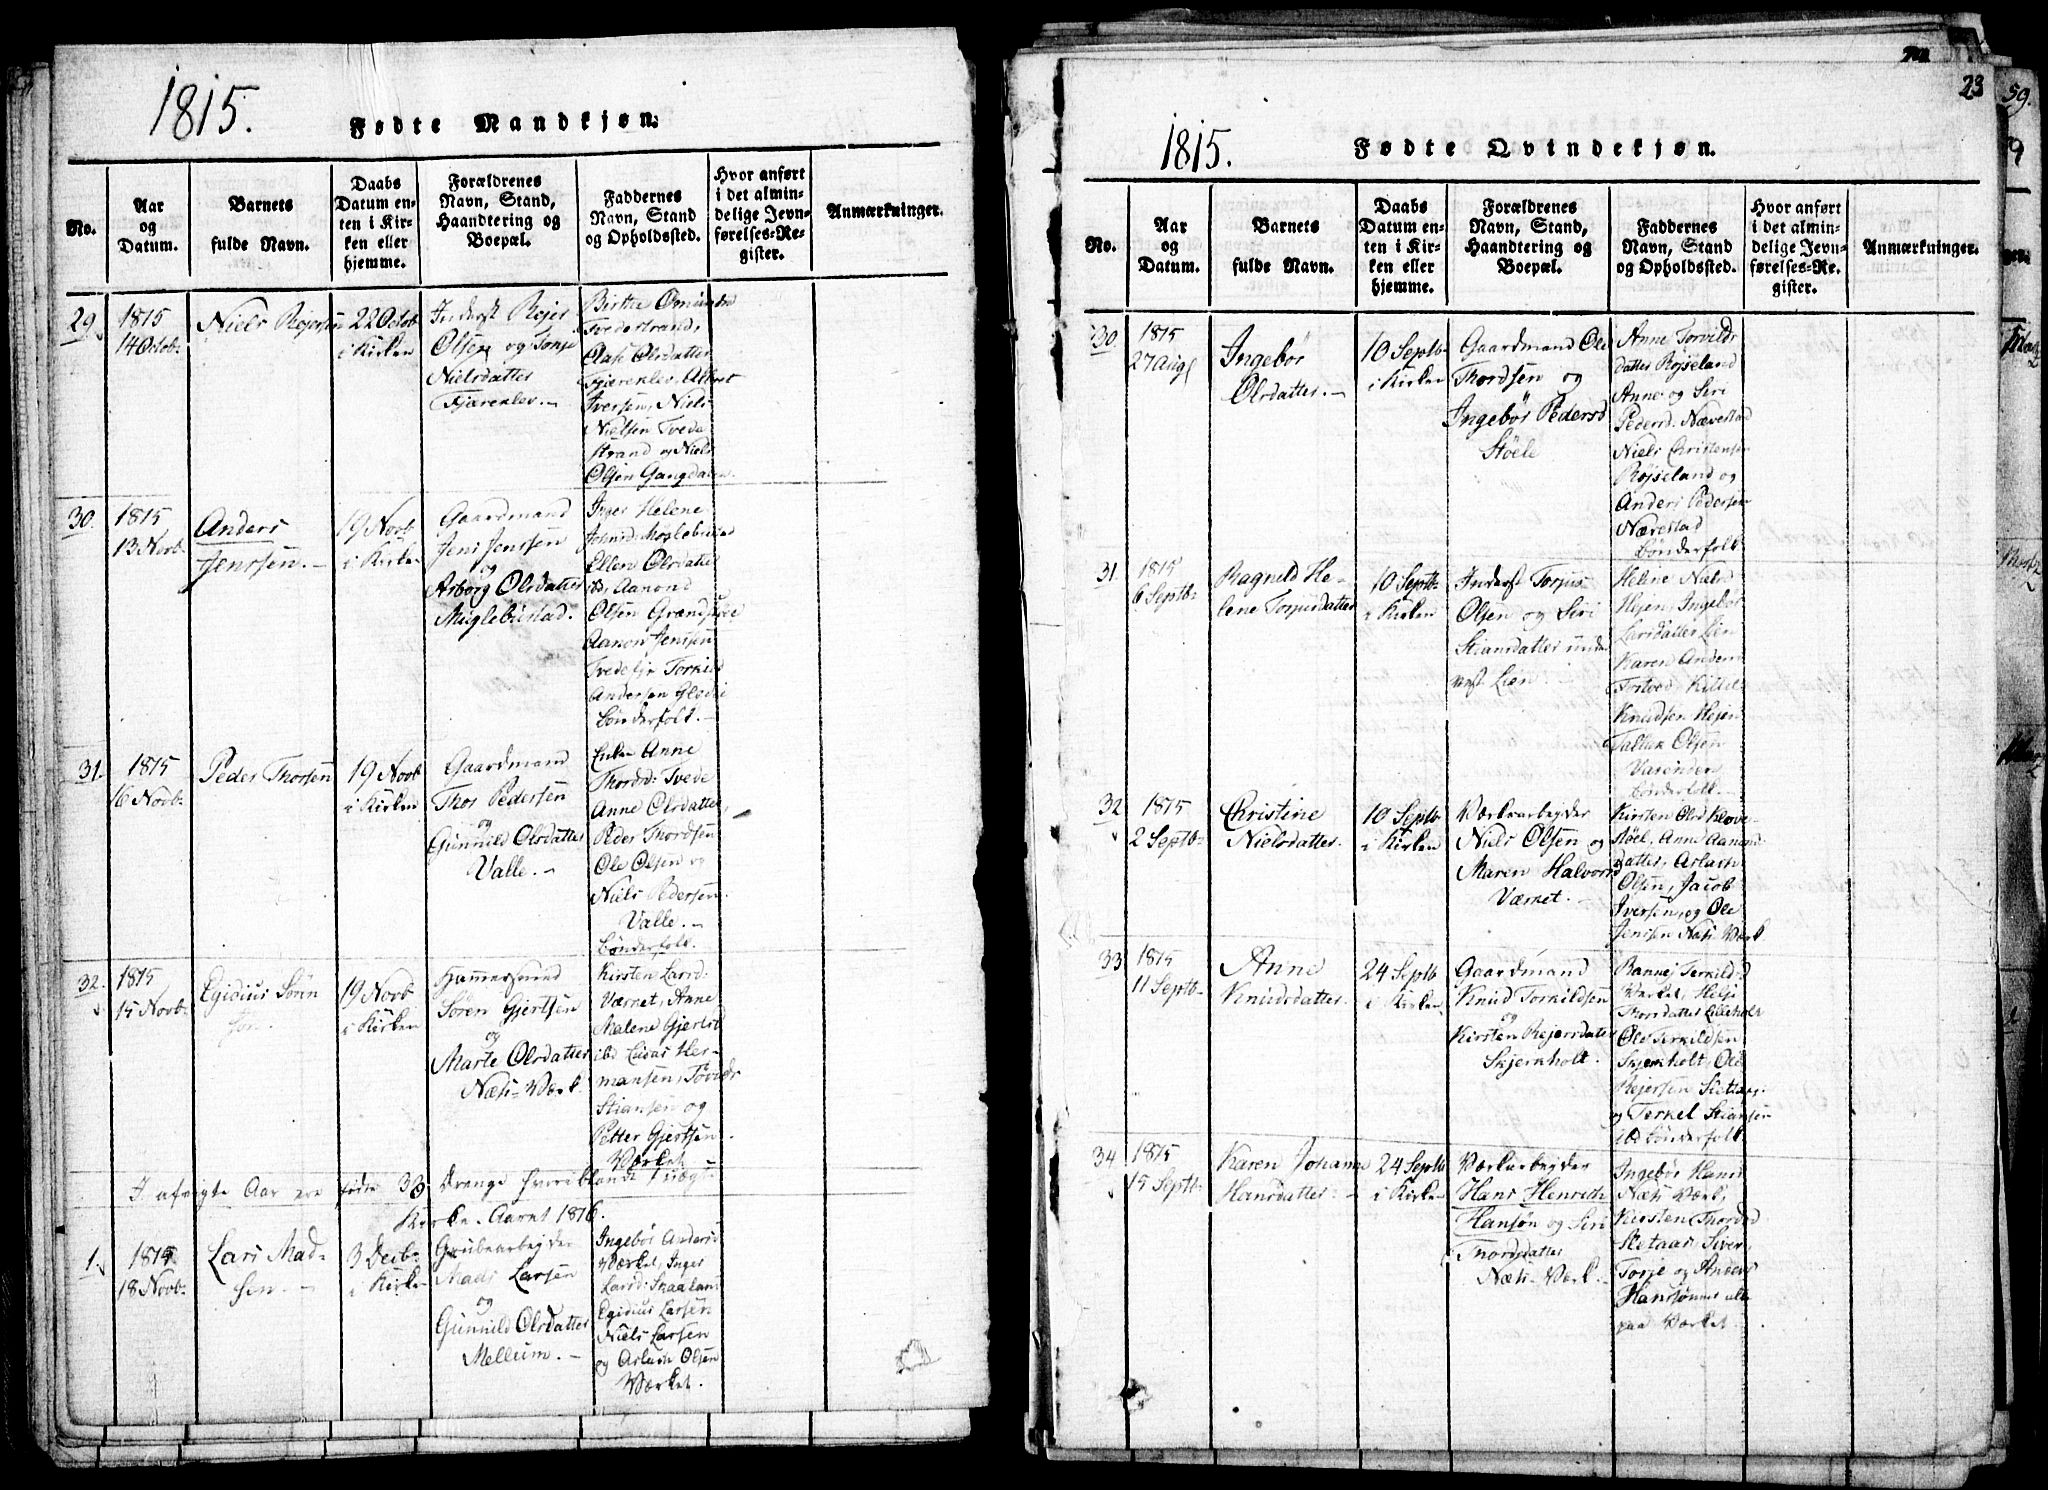 1815.
Fødte Mandkjøn.
No.
Aar
og
Datum.
Barnets
fulde Navn.
Daabs
Datum en-
ten i Kir-
ken eller
hjemme.
Forældrenes
Navn, Stand,
Haandtering og
Boepæl.
Faddernes
Navn, Stand
og Opholdssted.
Hvor anført
i det almin-
delige Jevn-
førelses-Re-
gister.
Anmærkninger.
29
1815
14 Octob:
Niels Rejersen
22 Octob
i Kirken
Inderst Rejer
Olsen og Tonje
Nielsdatter
Fjærenlev. –
Birthe
Tvedestrand,
Aase Olsdatter
Fjærenlev, Albret
Iversen, Niels
Nielsen Tvede
strand og Niels
Olsen Gangdalen.
30.
1815
13 Novb:
Anders
Jenssen. –
19 Novb
i Kirken
Gaardmand
Jens Jenssen
og
Asborg Olsdatter
Miglebustad.
Inger Helene
Ellen Olsdatter
ibd, Aanond
Olsen
Aanon Jenssen
Torkild
Andersen
Bønderfolk. –
31.
1815
16 Novb:
Peder Thorsen
19 Novb
i Kirken
Gaardmand
Thor Pedersen
og
Gunnild Olsdatter
Valle. –
Enke Anne
Thordsd: Tvede
Anne Olsdatter,
Peder Thordsen
Ole Olsen og
Niels Pedersen
Valle. –
Bønderfolk.
32.
1815
15 Novb:
Egidius Sørn
søn.
19 Novb
i Kirken
Hammersmed
Søren Gjertsen
og
Marte Olsdatter
Næs-Værk.
Kirsten Larsd:
Værket, Anne
Malene Gjertsd
ibd Lucas Her-
mansen,
Stiansen og
Petter Gjertsen
Værket –
I afvigte Aar ere fødte 38 Drenge hvoriblandt 1 uægt-
Kirke-Aaret 1816.
1.
1815
18 Novb:
Lars Mad-
sen. –
3 Decb:
i Kirken
Grubearbejder
Mads Larsen
og
Gunnild Olsdatter
Mellum. –
Ingebør Andersd
Værket, Inger
Larsd:
Egidius Larsen
Niels Larsen
og Aslach Olsen
Værket.
23
59.
1815.
Fødte Qvindekjøn.
No.
Aar
og
Datum.
Barnets
fulde Navn.
Daabs
Datum en-
ten i Kir-
ken eller
hjemme.
Forældrenes
Navn, Stand,
Haandtering og
Boepæl.
Faddernes
Navn, Stand
og Opholdssted.
Hvor anført
i det almin-
delige Jevn-
førelses-Re-
gister.
Anmærkninger.
30
1815
27 Aug
Ingebør
Olsdatter. –
10 Septb
i Kirken
Gaardmand Ole
Thordsen og
Ingebør Pedersd
Støele
Anne Torvilds
datter Røjseland
Anne og Siri
Pedersd. Næverstad
Niels Christensen
Røjseland og
Anders Pedersen
Næverstad
Bønderfolk.
31.
1815
6 Septb:
Ragnild He-
lene Torjusdatter
10 Septb:
i Kirken
Inderst Torjus
Olsen og Siri
Stiansdatter under
Lien.
Helene Nielsd
Hejen, Ingebor
Larsdatter Lien
Karen Andersd
Tostved, Kittel
Knudsen Hejen
Tallak Olsen
Bønderfolk. –
32
1815
2 Septb:
Christine
Nielsdatter.
10 Septb
i Kirken
Værksarbejder
Niels Olsen og
Maren Halvorsd
Værket. –
Kirsten Olsd Klove-
støel, Anne Aanond
datter, Aslach
Olsen, Jacob
Iversen, og Ole
Jenssen Næs-Værk
33
1815
11 Septb:
Anne
Knudsdatter.
24 Septb
i Kirken
Gaardmand
Knud Torkildsen
og
Kirsten Rejersdatter
Skjerkholt.
Rannej Terkildsd
Værket, Helje
Thorsdatter Lilleholt
Ole Terkildsen
Skjerkholt, Ole
Rejersen Sletaas
og Terkel Stiansen
ibd Bønderfolk.
34
1815
15 Septb:
Karen Johanne
Hansdatter: –
24 Septb
i Kirken
Værksarbejder
Hans Henrich
Hansøn og Siri
Thordsdatter
Næs-Værk. –
Ingebør Hansd
Næs Værk,
Kirsten Thordsd
Sletaas, Siver
Torje og Anders
Hanssønner alle
paa Værket.